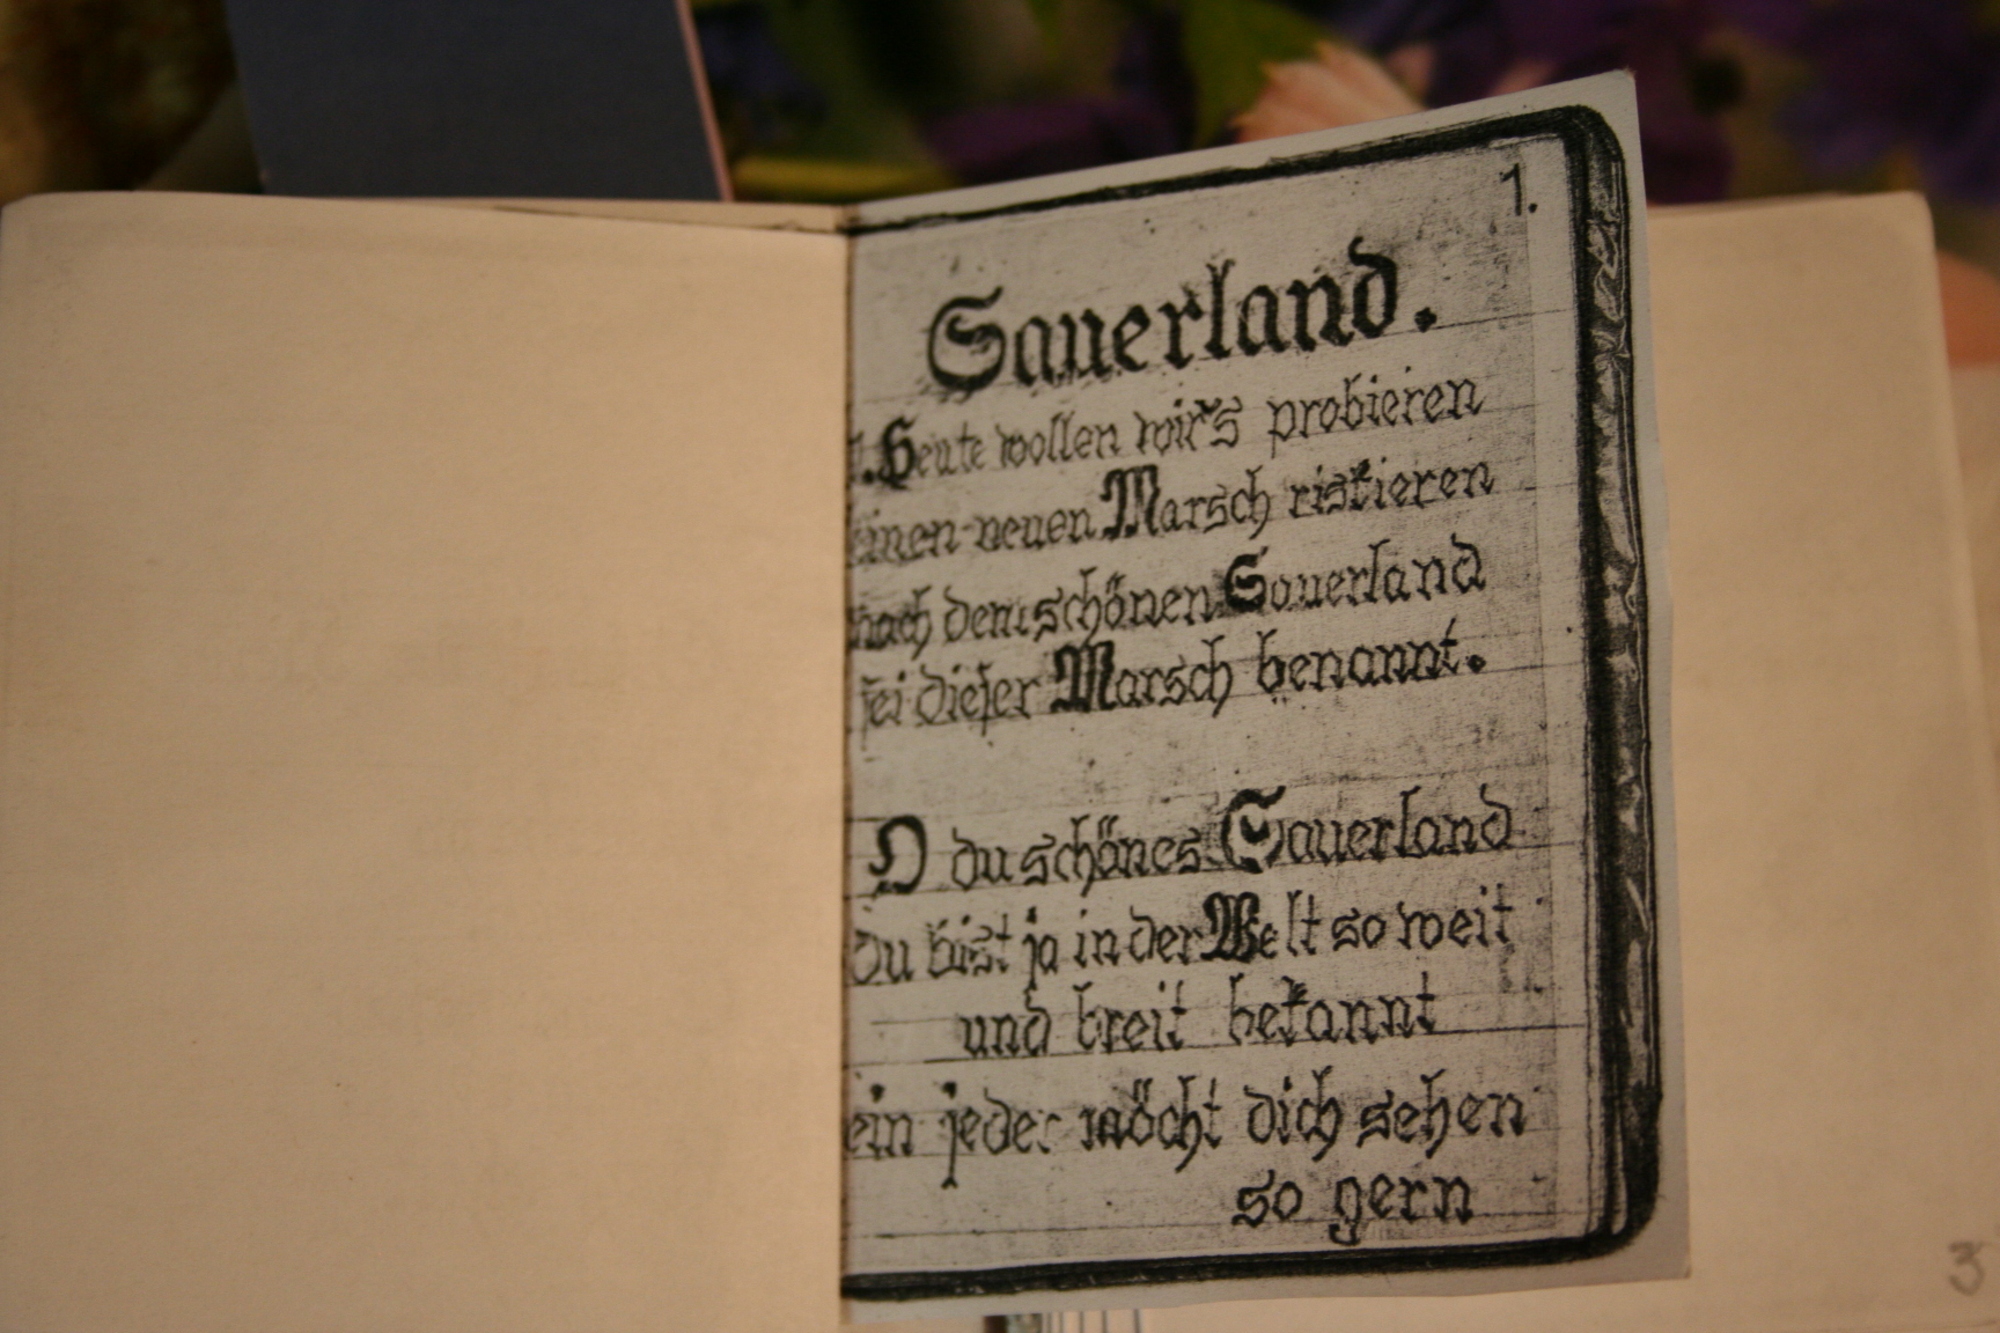 1.
Sauerland.
1. Heute wollen wir's probieren
einen neuen Marsch riskieren
nach dem schönen Sauerland
sei dieser Marsch benannt.
O du schönes Sauerland
du bist ja in der Welt so weit
und breit bekannt
ein jeder möcht dich sehen
so gern
3